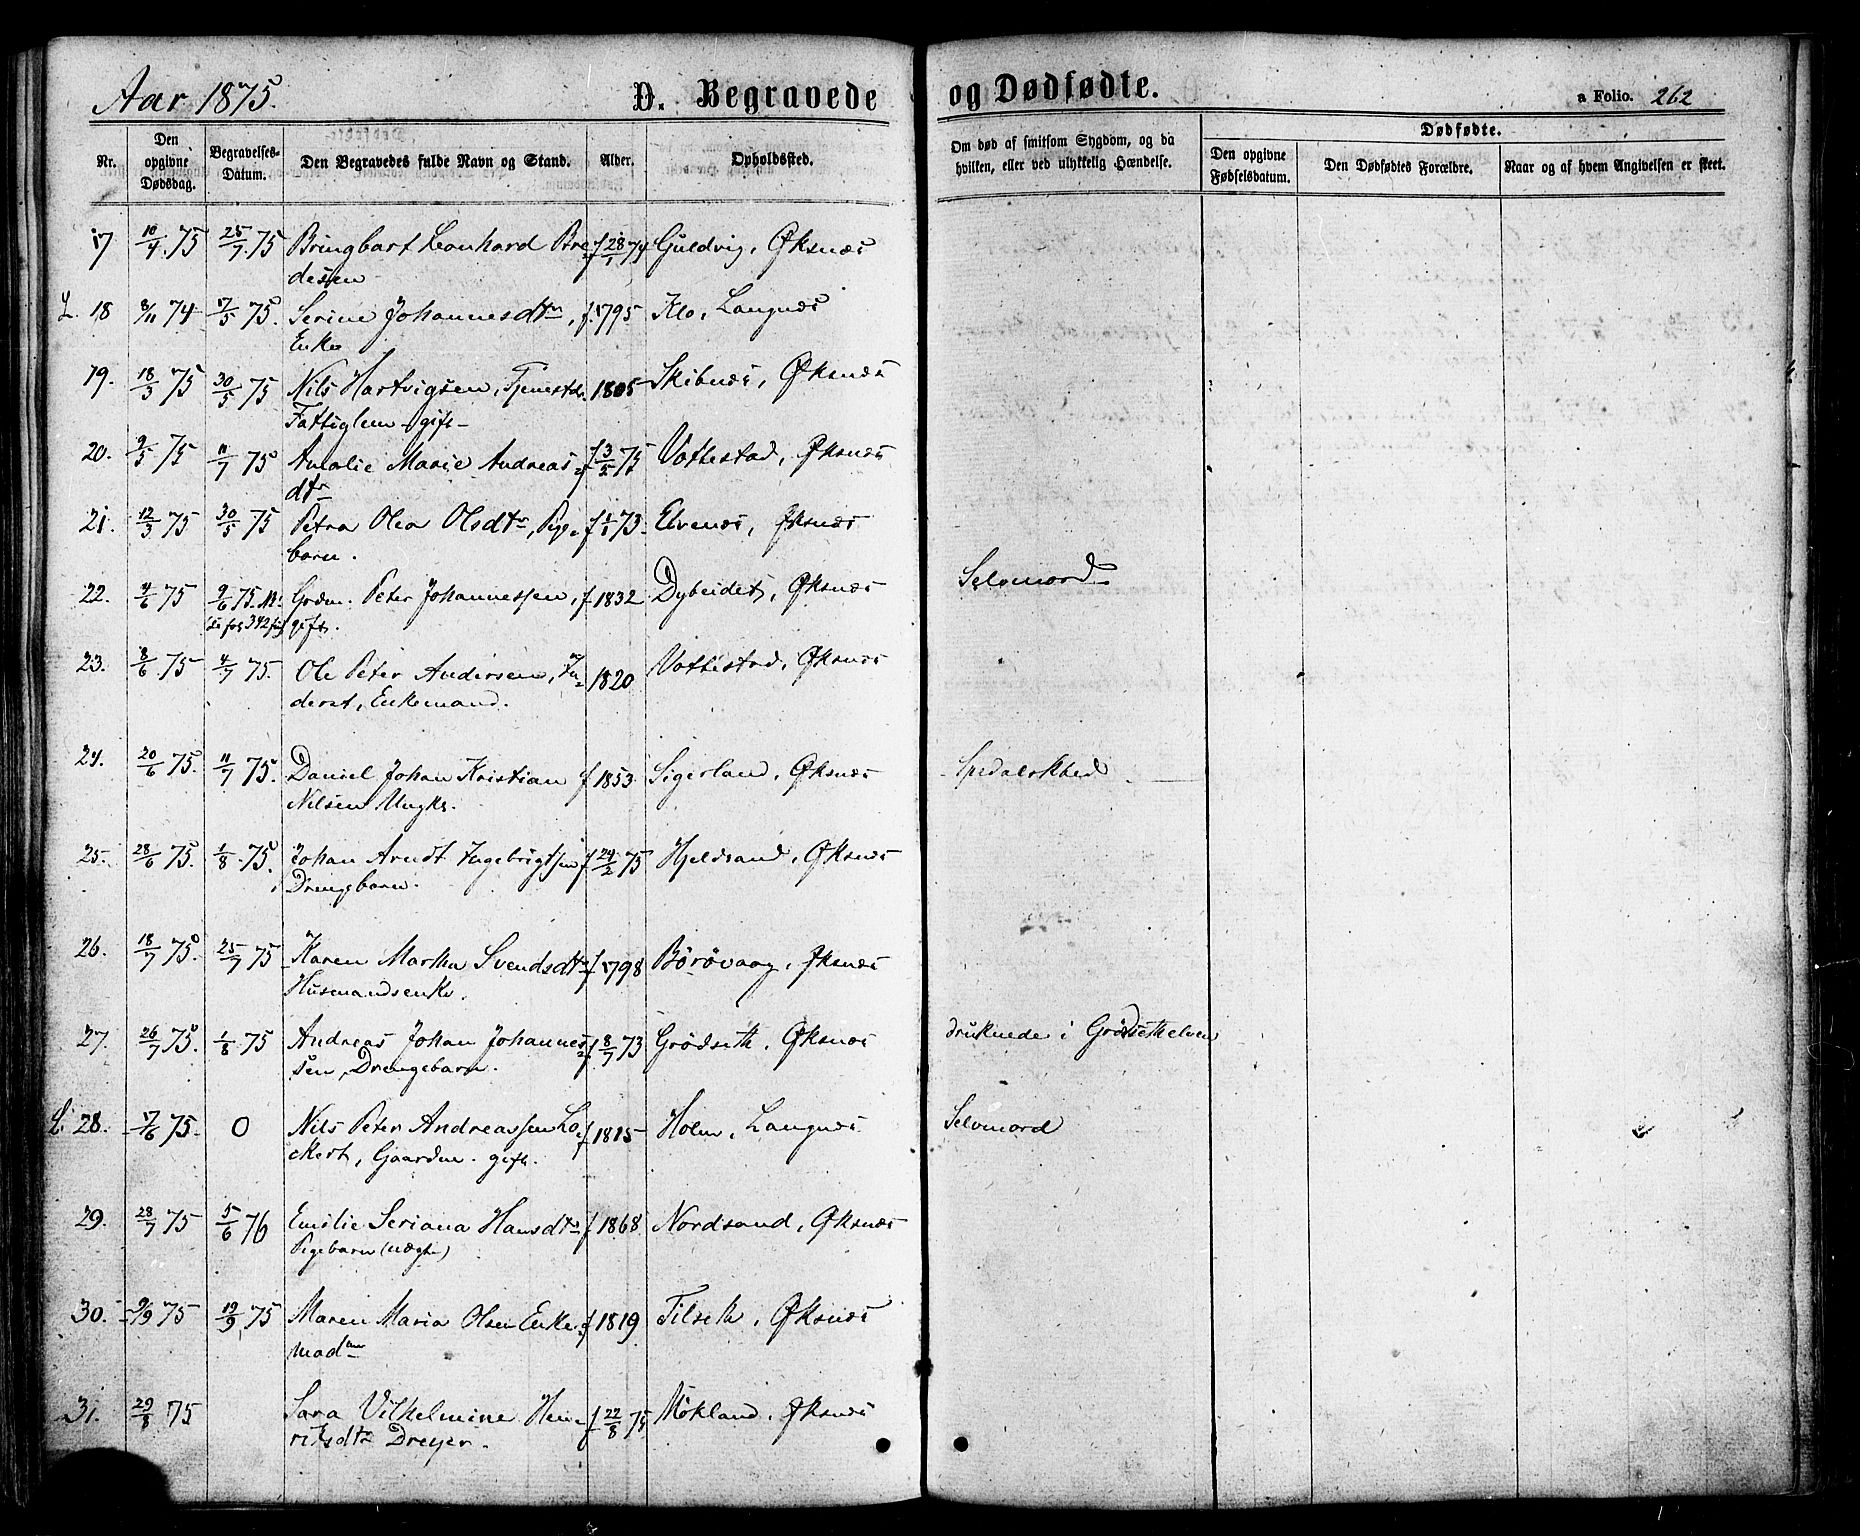 Aar 1875. D. Begravede og Dødfødte. a Folio. 262
Nr. Den opgivne Dødsdag. Begravelses-Datum. Den Begravedes fulde Navn og Stand. Alder. Opholdssted. Om død af smitsom Sygdom, og da hvilken, eller ved ulykkelig Hændelse. Dødfødte. Den opgivne Fødselsdatum. Den Dødfødtes Forældre. Naar og af hvem Angivelsen er skeet.
17 10/4 75 25/7 75 Bringbart Leonhard Bre- f 28/1 74 Guldvig, Øksnæs
desen
L. 18 8/11 74 17/5 75. Serine Johannesdtr, f. 1795 Klo, Langnæs
Enke
19. 18/3 75 30/5 75 Nils Hartvigsen, Tjenestdr. 1805 Skibnæs, Øksnæs
Fattiglem - gift -
20. 9/5 75 11/7 75 Amalie Marie Andreas- f 3/5 75 Vottestad, Øksnæs
dtr
21. 12/3 75 30/5 75 Petra Olea Olsdtr, Pige- f 1/1 73. Elvenæs, Øksnæs
barn.
22. 4/6 75 9/6 75. Grdm. Peter Johannessen, f. 1832 Dybeidet, Øksnæs Selvmord
gift.
23. 8/6 75 4/7 75. Ole Peter Andersen, In- 1820 Vottestad, Øksnæs
derst, Enkemand.
24. 20/6 75. 11/7 75. Daniel Johan Kristian f 1853 Sigerland, Øksnæs Spedalskhed
Nilsen Ungkr.
25. 28/6 75. 1/8 75. Johan Arndt Ingebrigtsen f 24/2 75 Hjeldsand, Øksnæs
Drengebarn.
26. 18/7 75. 25/7 75 Karen Martha Svendsdtr f. 1798 Börövaag, Øksnæs
Husmandsenke.
27. 26/7 75. 1/8 75 Andreas Johan Johannes- f 8/7 73 Grödseth, Øksnæs druknede i Grödsethelven
sen, Drengebarn.
L. 28. 17/6 75. 0 Nils Peter Andreassen Lo- f 1815 Holm, Langnæs Selvmord
ckert, Gaardm. gift.
29. 28/7 75 5/6 76 Emilie Seriana Hansdtr f 1868 Nordsand, Øksnæs
Pigebarn (uægte)
30. 9/9 75 19/9 75 Maren Maria Olsen Enke- f 1819 Tilseth, Øksnæs
mad
31. 29/8 75 Sara Vilhelmine Hen- f 22/8 75 Mökland, Øksnæs
riksdtr Dreyer.